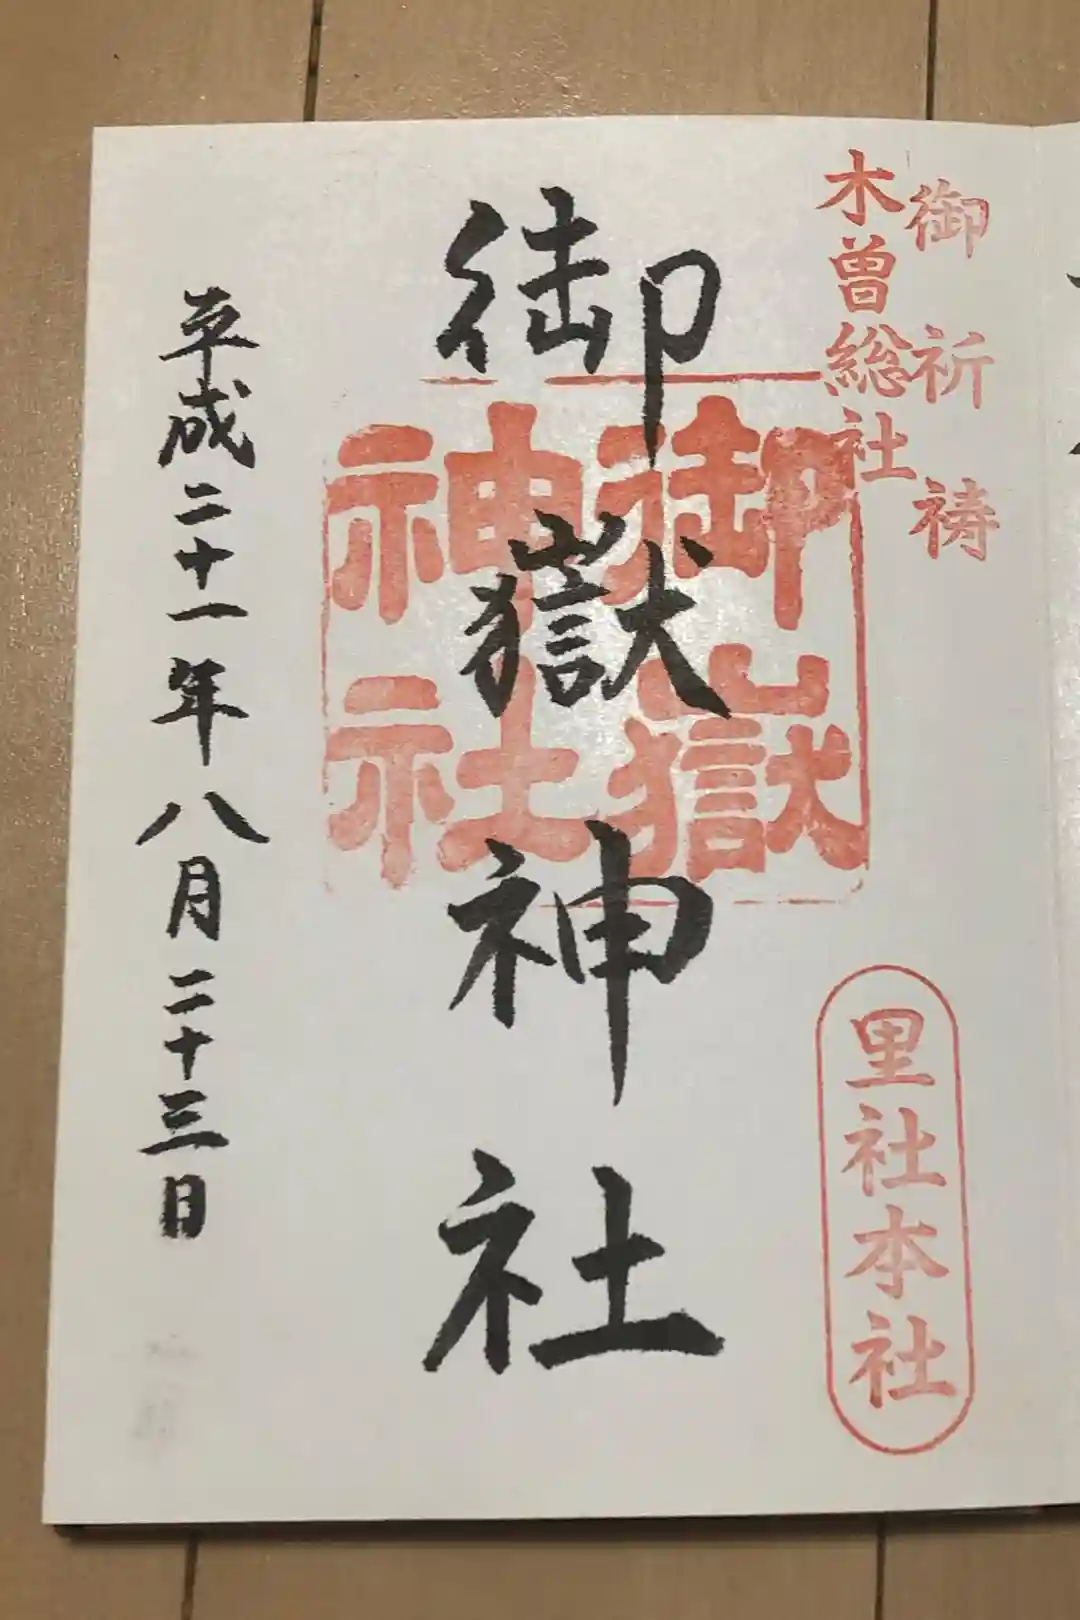 御祈祷
木曽総社
里社本社
御嶽神社
御嶽
神社
平成二十一年八月二十三日